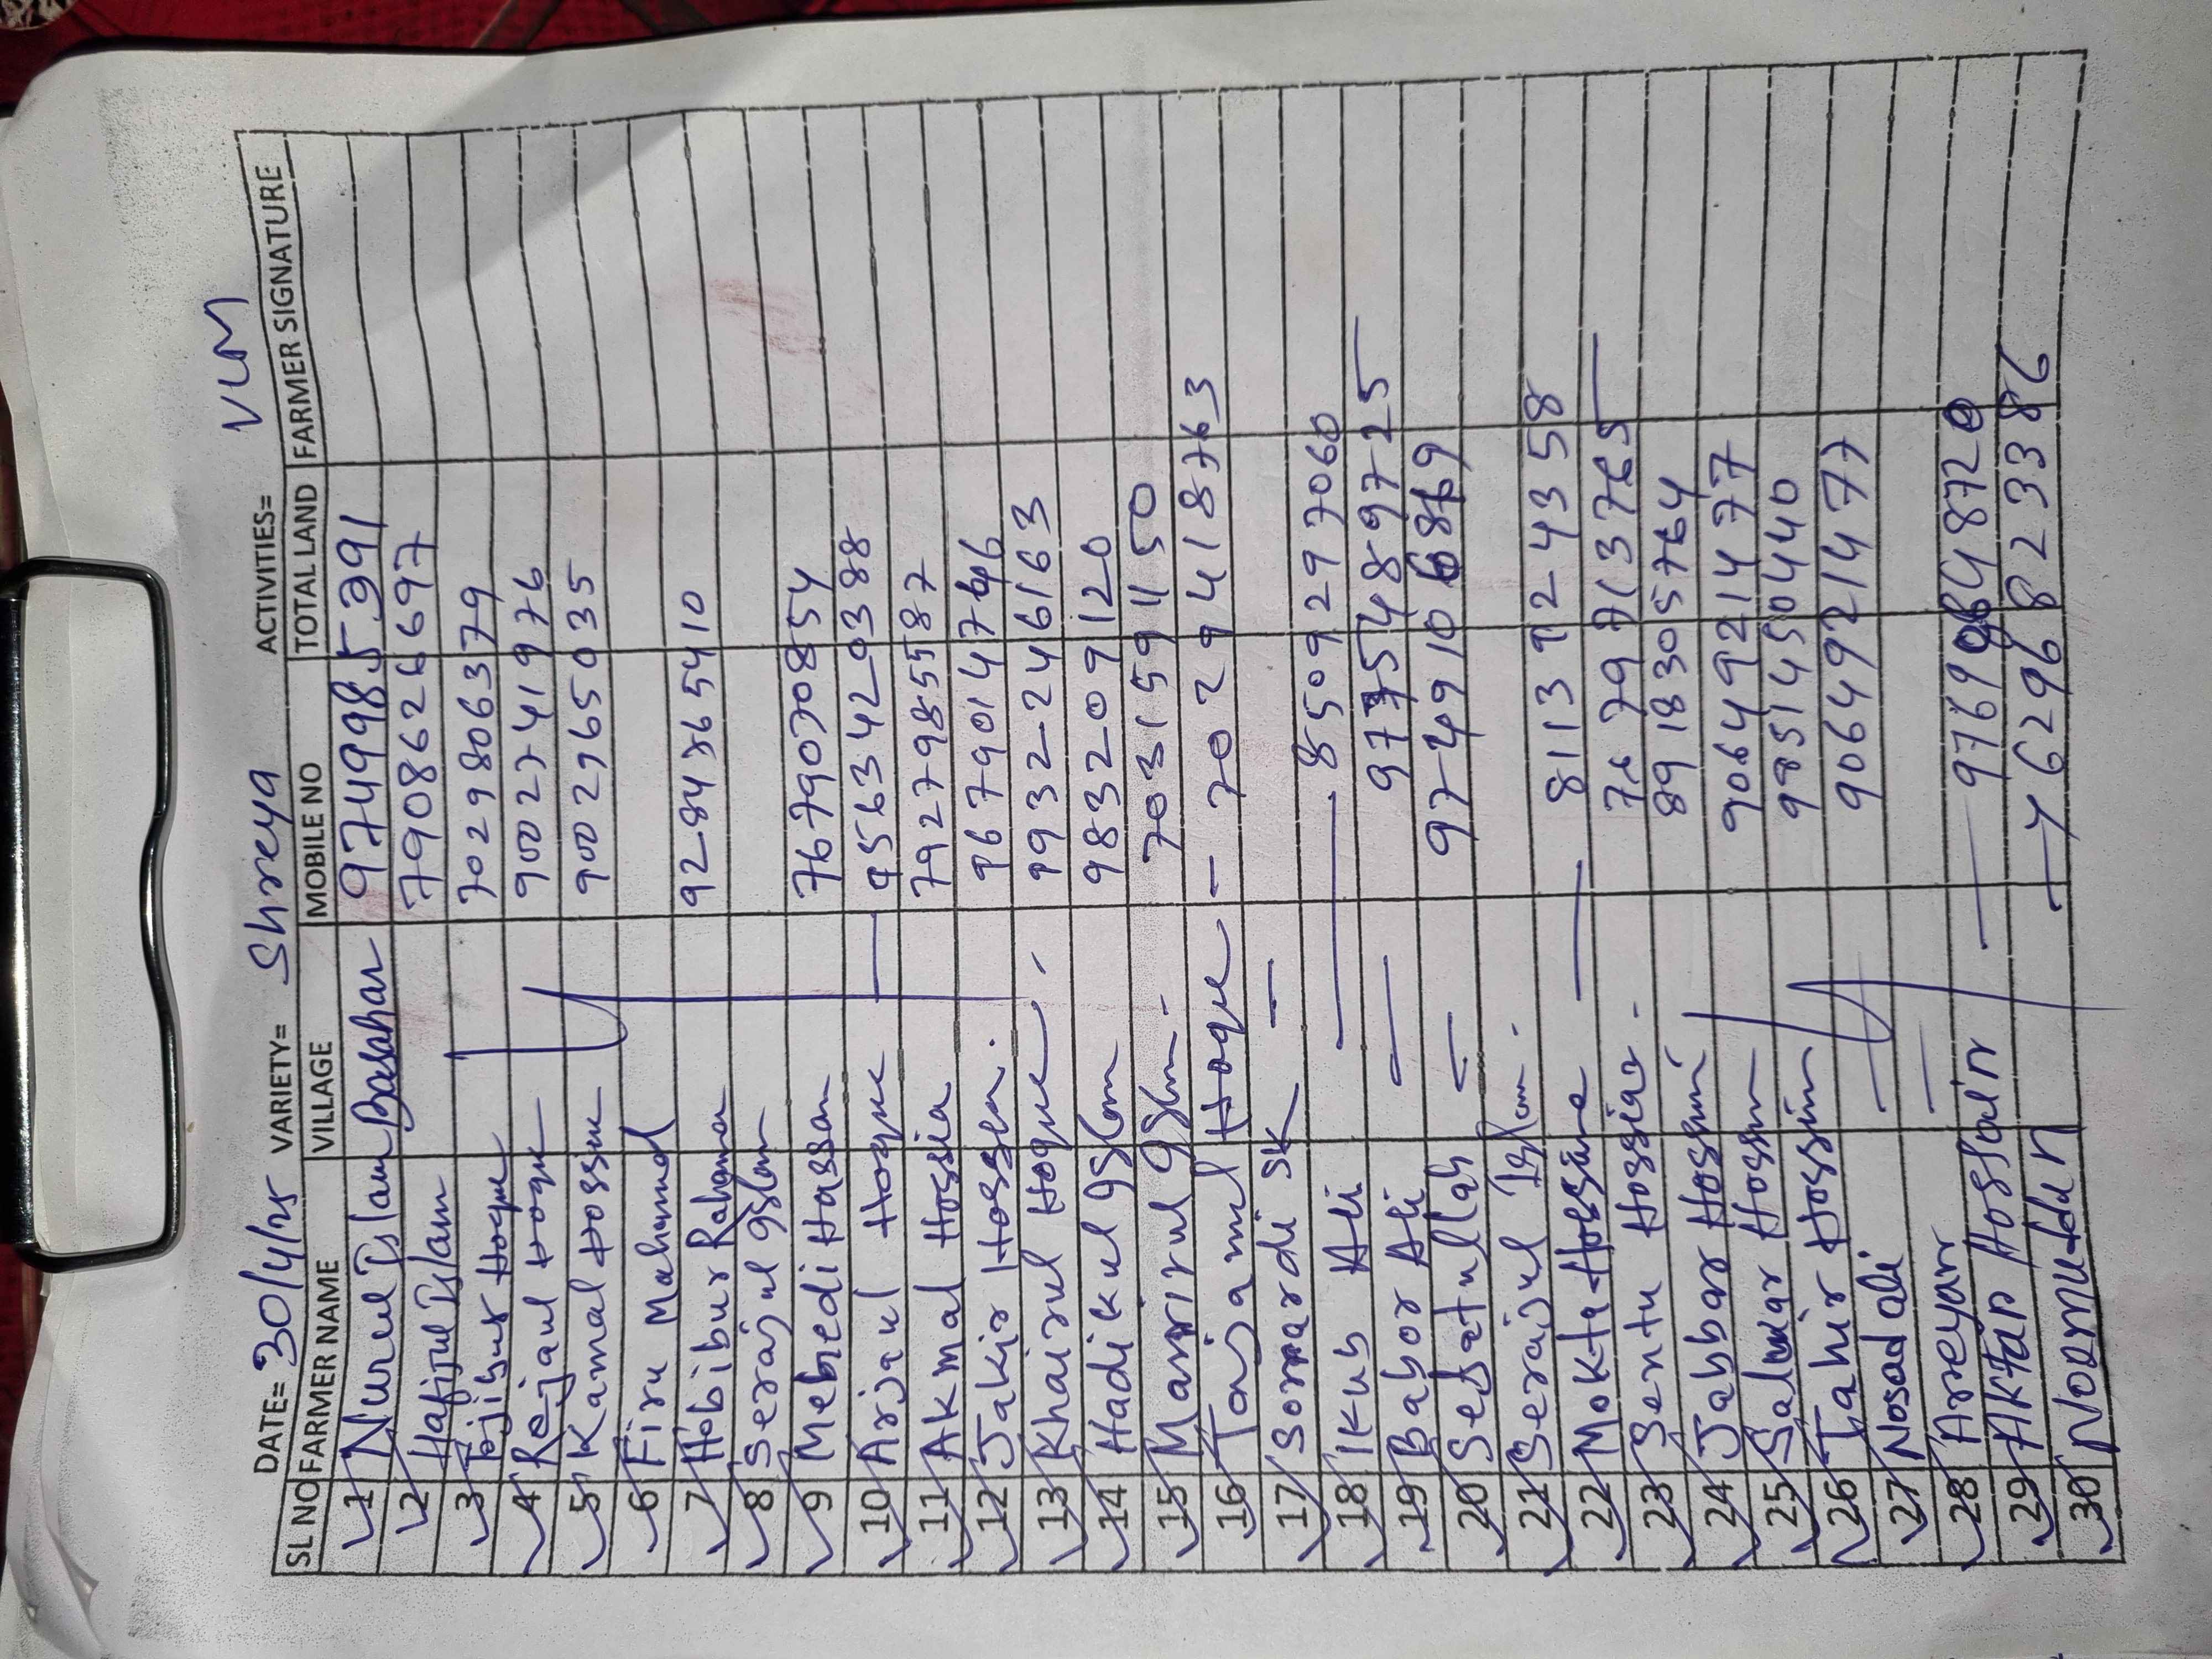 DATE= 30/4/25 VARIETY= Shreya ACTIVITIES= VLM
SL NO FARMER NAME VILLAGE MOBILE NO TOTAL LAND FARMER SIGNATURE
1 Nurul Islam Basahar 9749985391
2 Hafijul Islam 7908626697
3 Tojibur Hoque 7029806379
4 Rejaul Hoque 9002741976
5 Kamal Hossue 9002965035
6 Firu Mahamud
7 Hobibur Rahaman 9284765410
8 Serajul Islam
9 Mehedi Hassan 7679070854
10 Arjaul Hoque 9563420388
11 Akmal Hossia 7927985587
12 Jakir Hossen. 967901477
13 Khairul Hoque 9932246163
14 Hadikul Islam 983209120
15 Manirul Islam. 7031591150
16 Tajamul Hoque - 7029418763
17 Somardi SK
18 Ikub Ali 8509297060
19 Babor Ali
20 Sefatullah
21 Serajul Islam.
22 Mokta Hossane 8113924358
23 Sentu Hossiar.
24 Jabbar Hossini 8918305764
25 Salwar Hossin 9064921477
26 Tahir Hossim 9851450440
27 Nosad ali 9064921477
28 Areyan
29 Aktar Hossain
30 Noemuddin 7629682338